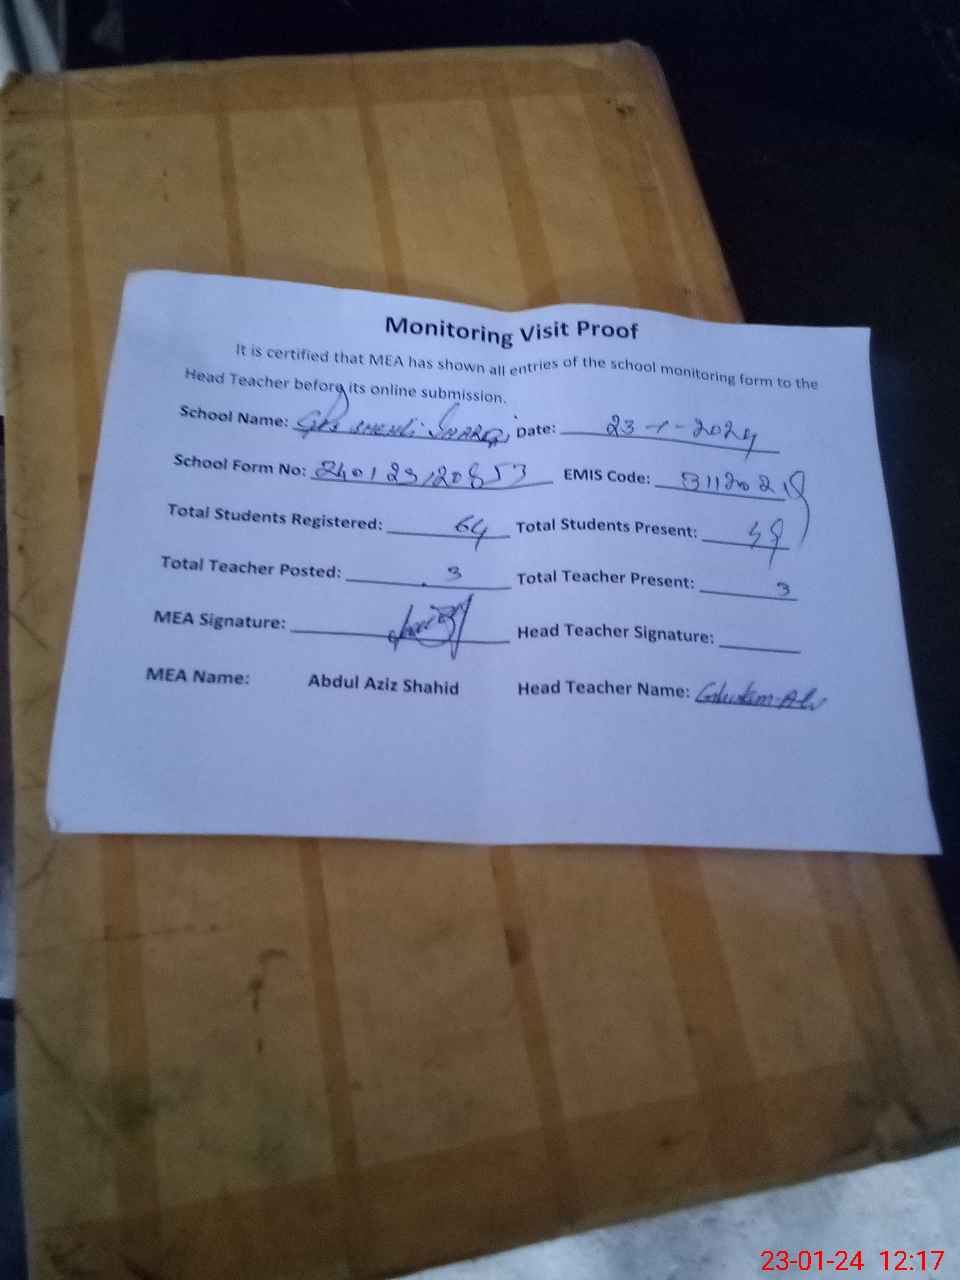 Monitoring Visit Proof
It is certified that MEA has shown all entries of the school monitoring form to the
Head Teacher before its online submission.
School Name: Date: 23-1-2024
School Form No: EMIS Code:
Total Students Registered: 64 Total Students Present:
Total Teacher Posted: 3 Total Teacher Present: 3
MEA Signature: Head Teacher Signature:
MEA Name: Abdul Aziz Shahid Head Teacher Name:
23-01-24 12:17